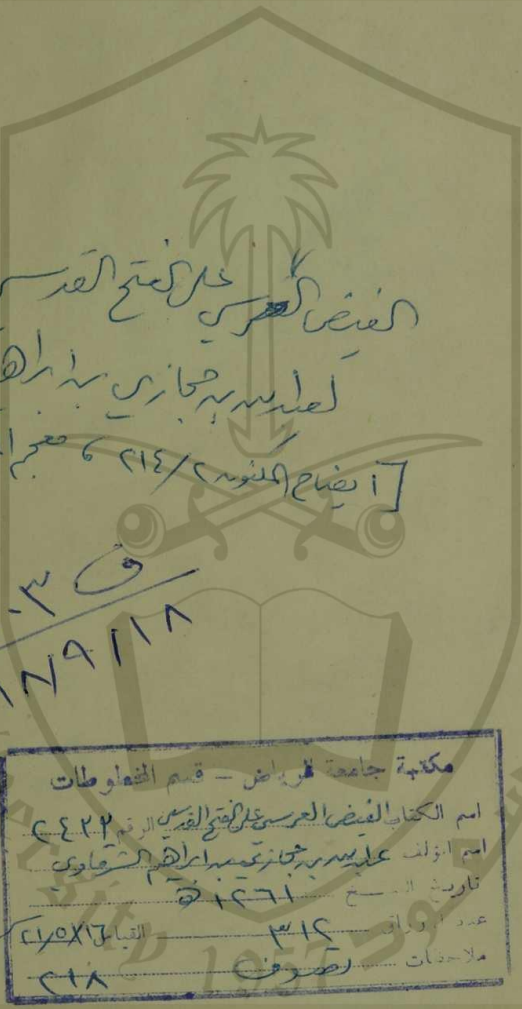 الفيض العرسي على الفتح القدسي
لعبد الله بن حجازي بن ابراه
[ايضاح المكنون ٢/٢١٤ ، معجم ا
ف
١٨/٩/١٨
مكتبة جامعة الرياض - قسم المخطوطات
اسم الكتاب الفيض العرسي على الفتح القدسي الرقم ٢٤٢٢
اسم المؤلف عبد الله بن حجازي بن ابراهيم الشرقاوي
تاريخ النسخ ١٢٦١ هـ
عدد الأوراق ٣١٢ القياس ٢١/٥X١٦
ملاحظات تصوف ٢١٨
1957